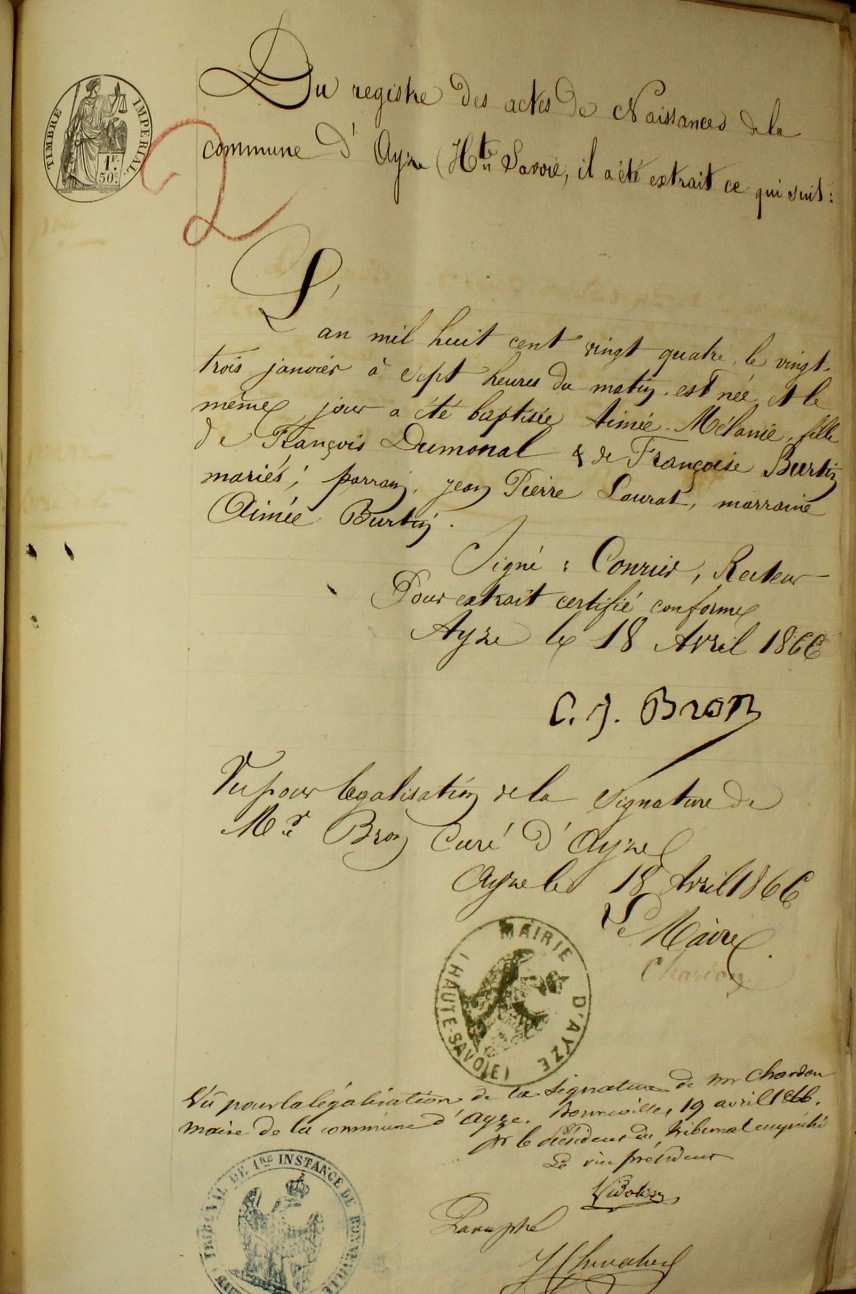 TIMBRE IMPERIAL
1F. 50c.
2
Du registre des actes de Naissances de la
commune d'Ayze (Hte Savoie, il a été extrait ce qui suit:
L'an mil huit cent vingt quatre, le vingt-
trois janvier à sept heures du matin est née, et le
même jour a été baptisée Aimée Mélanie, fille
de François Dumonal & de Françoise Burtin
mariés; parrain, jean Pierre Laurat, marraine
Aimée Burtin.
Signé: Conrier, Recteur
Pour extrait certifié conforme
Ayze le 18 Avril 1866
C. J. Bron
Vu pour légalisation de la signature de
Mr Bron Curé d'Ayze
Ayze le 18 Avril 1866
Le Maire
Chardon
MAIRIE D'AYZE
(HAUTE-SAVOIE)
Vu pour la légalisation de la signature de mr Chardon
maire de la commune d'Ayze. Bonneville, 19 avril 1866.
pr le président du tribunal empêché
Le vice président
TRIBUNAL DE 1RE INSTANCE DE BONNEVILLE